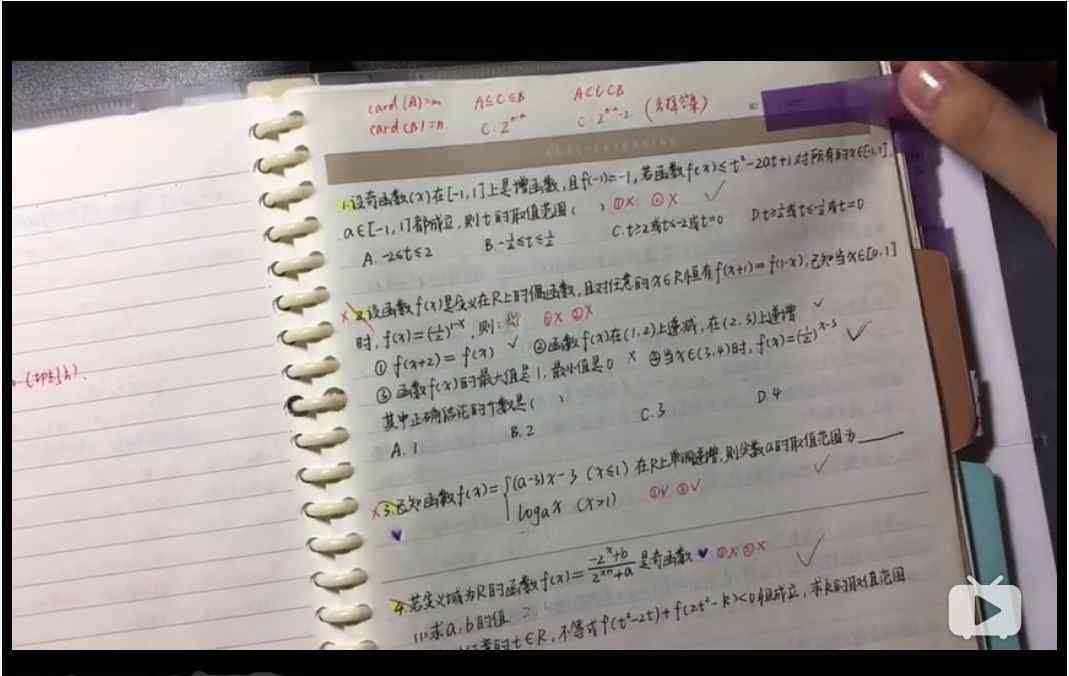 card(A)=m A⊆C⊆B A⊂C⊂B
card(B)=n C:2ⁿ⁻ᵐ C:2ⁿ⁻ᵐ-2
1.设奇函数(x)在[-1,1]上是增函数,且f(-1)=-1,若函数f(x)≤t²-2at+1对所有的x∈[-1,1].
a∈[-1,1]都成立,则t的取值范围( ) ①× ②× ✓
A.-2≤t≤2 B.-1/2≤t≤1/2 C.t≥2或t≤-2或t=0 D.t≥1/2或t≤-1/2或t=0
× 2.设函数f(x)是定义在R上的偶函数,且对任意的x∈R恒有f(x+1)=f(1-x),已知当x∈[0,1]
时,f(x)=(1/2)¹⁻ˣ,则: ①× ②×
① f(x+2)=f(x) ✓ ②函数f(x)在(1,2)上递减,在(2,3)上递增 ✓
③ 函数f(x)的最大值是1,最小值是0 × ④当x∈(3,4)时,f(x)=(1/2)ˣ⁻³ ✓
其中正确结论的个数是( )
A.1 B.2 C.3 D.4
× 3.已知函数f(x)={(a-3)x-3 (x≤1) 在R上单调递增,则实数a的取值范围为____
logₐx (x>1) ①✓ ②✓ ✓
4.若定义域为R的函数f(x)=(-2ˣ+b)/(2ˣ⁺¹+a)是奇函数 ♥ ①× ②× ✓
(1)求a,b的值
的t∈R,不等式f(t²-2t)+f(2t²-k)<0恒成立,求k的取值范围